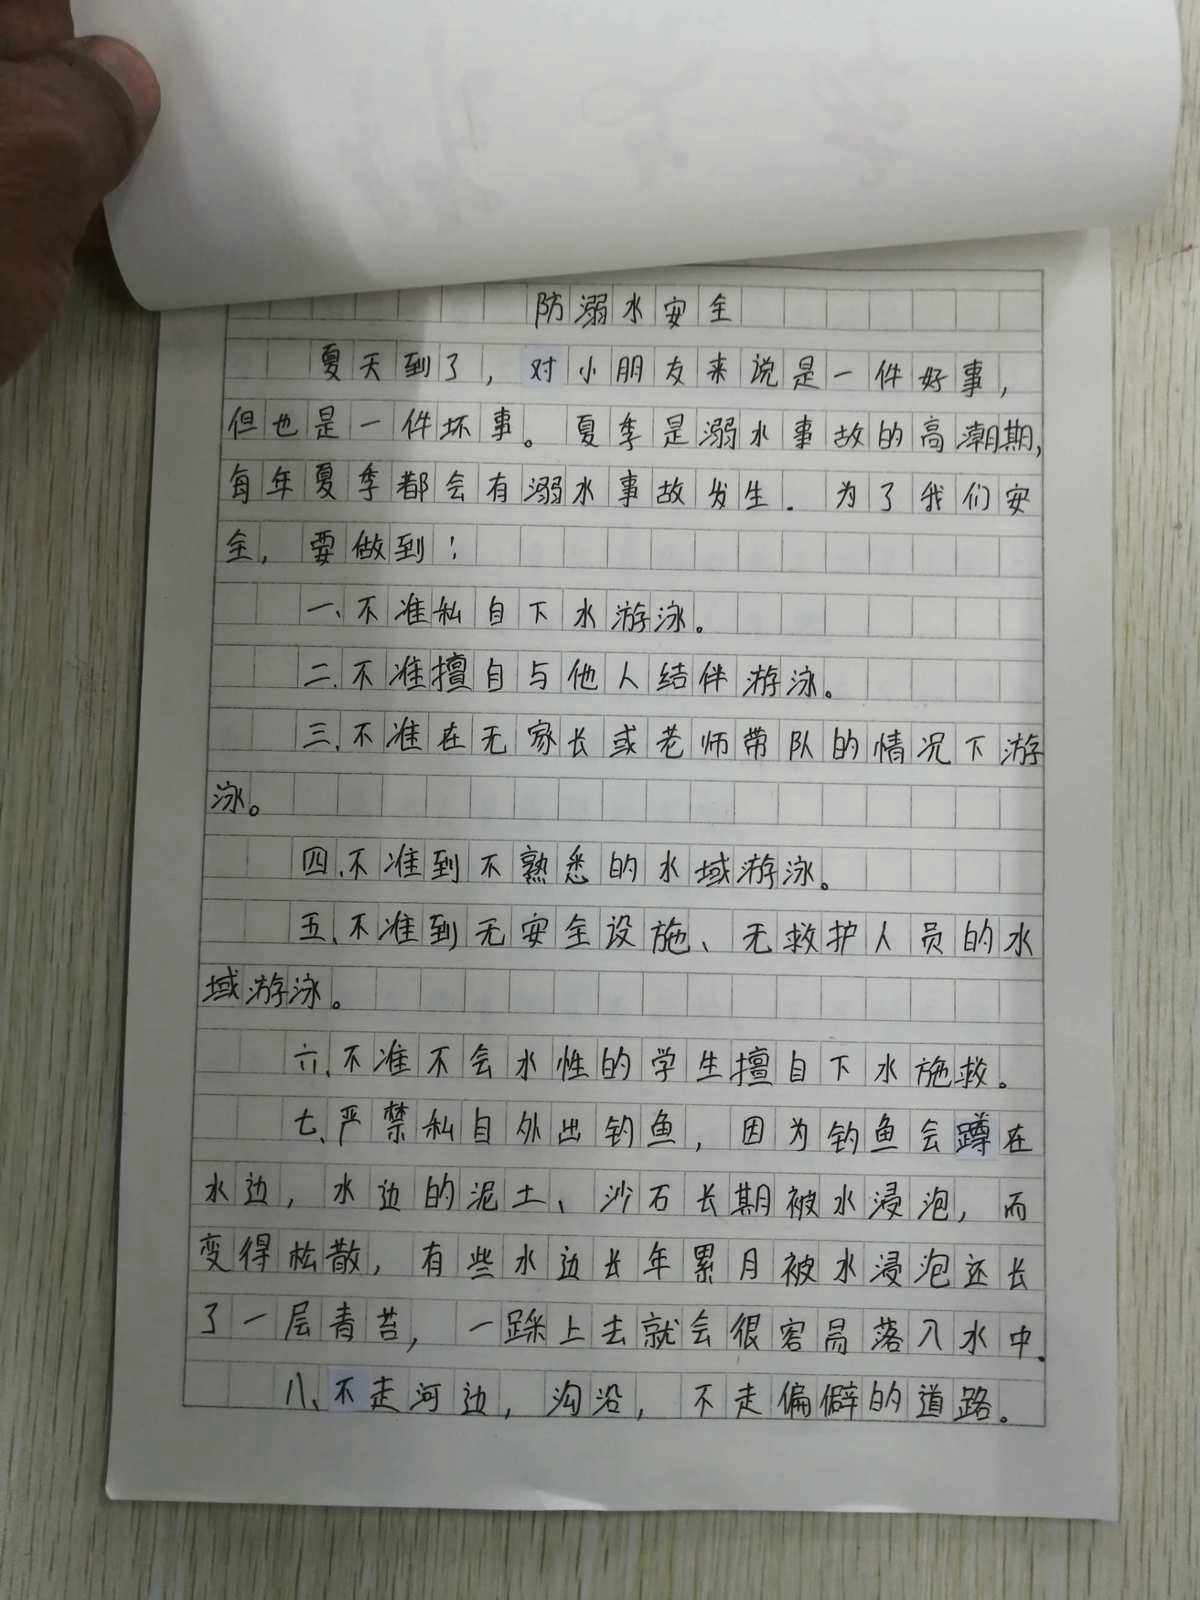 防溺水安全
夏天到了，对小朋友来说是一件好事，
但也是一件坏事。夏季是溺水事故的高潮期，
每年夏季都会有溺水事故发生．为了我们安
全，要做到！
一、不准私自下水游泳。
二、不准擅自与他人结伴游泳。
三、不准在无家长或老师带队的情况下游
泳。
四、不准到不熟悉的水域游泳。
五、不准到无安全设施、无救护人员的水
域游泳。
六、不准不会水性的学生擅自下水施救。
七、严禁私自外出钓鱼，因为钓鱼会蹲在
水边，水边的泥土、沙石长期被水浸泡，而
变得松散，有些水边长年累月被水浸泡还长
了一层青苔，一踩上去就会很容易落入水中．
八、不走河边，沟沿，不走偏僻的道路。